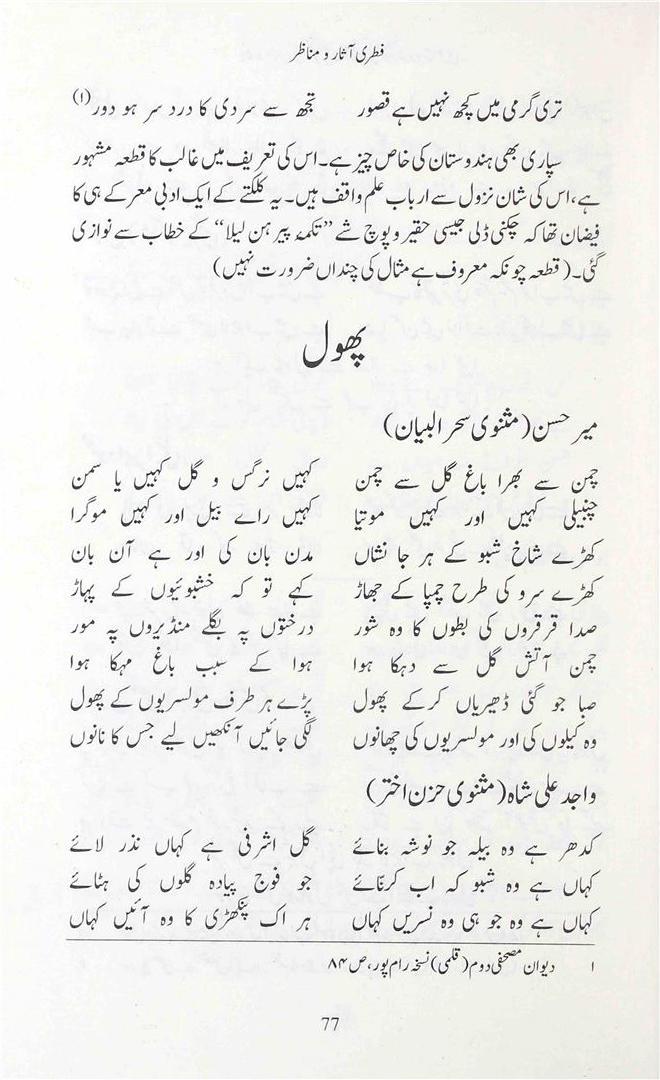 فطری آثار و مناظر
تری گرمی میں کچھ نہیں ہے قصور تجھ سے سردی کا درد سر ہو دور (۱)
سپاری بھی ہندوستان کی خاص چیز ہے۔ اس کی تعریف میں غالب کا قطعہ مشہور
ہے، اس کی شان نزول سے ارباب علم واقف ہیں۔ یہ کلکتے کے ایک ادبی معرکے ہی کا
فیضان تھا کہ چکنی ڈلی جیسی حقیر و پوچ شے ”تکمۂ پیرہن لیلا“ کے خطاب سے نوازی
گئی۔ (قطعہ چونکہ معروف ہے مثال کی چنداں ضرورت نہیں)
پھول
میر حسن (مثنوی سحر البیان)
چمن سے بھرا باغ گل سے چمن کہیں نرگس و گل کہیں یا سمن
چنبیلی کہیں اور کہیں موتیا کہیں راے بیل اور کہیں موگرا
کھڑے شاخ شبو کے ہر جا نشاں مدن بان کی اور ہے آن بان
کھڑے سرو کی طرح چمپا کے جھاڑ کہے تو کہ خشبوئیوں کے پہاڑ
صدا قرقروں کی بطوں کا وہ شور درختوں پہ بگلے منڈیروں پہ مور
چمن آتش گل سے دہکا ہوا ہوا کے سبب باغ مہکا ہوا
صبا جو گئی ڈھیریاں کرکے پھول پڑے ہر طرف مولسریوں کے پھول
وہ کیلوں کی اور مولسریوں کی چھانوں لگی جائیں آنکھیں لیے جس کا نانوں
واجد علی شاہ (مثنوی حزن اختر)
کدھر ہے وہ بیلہ جو نوشہ بنائے گل اشرفی ہے کہاں نذر لائے
کہاں ہے وہ شبو کہ اب کرنائے جو فوج پیادہ گلوں کی ہٹائے
کہاں ہے وہ جو ہی وہ نسریں کہاں ہر اک پنکھڑی کا وہ آئیں کہاں
۱ دیوان مصحفی دوم (قلمی) نسخہ رام پور، ص ۸۴
77